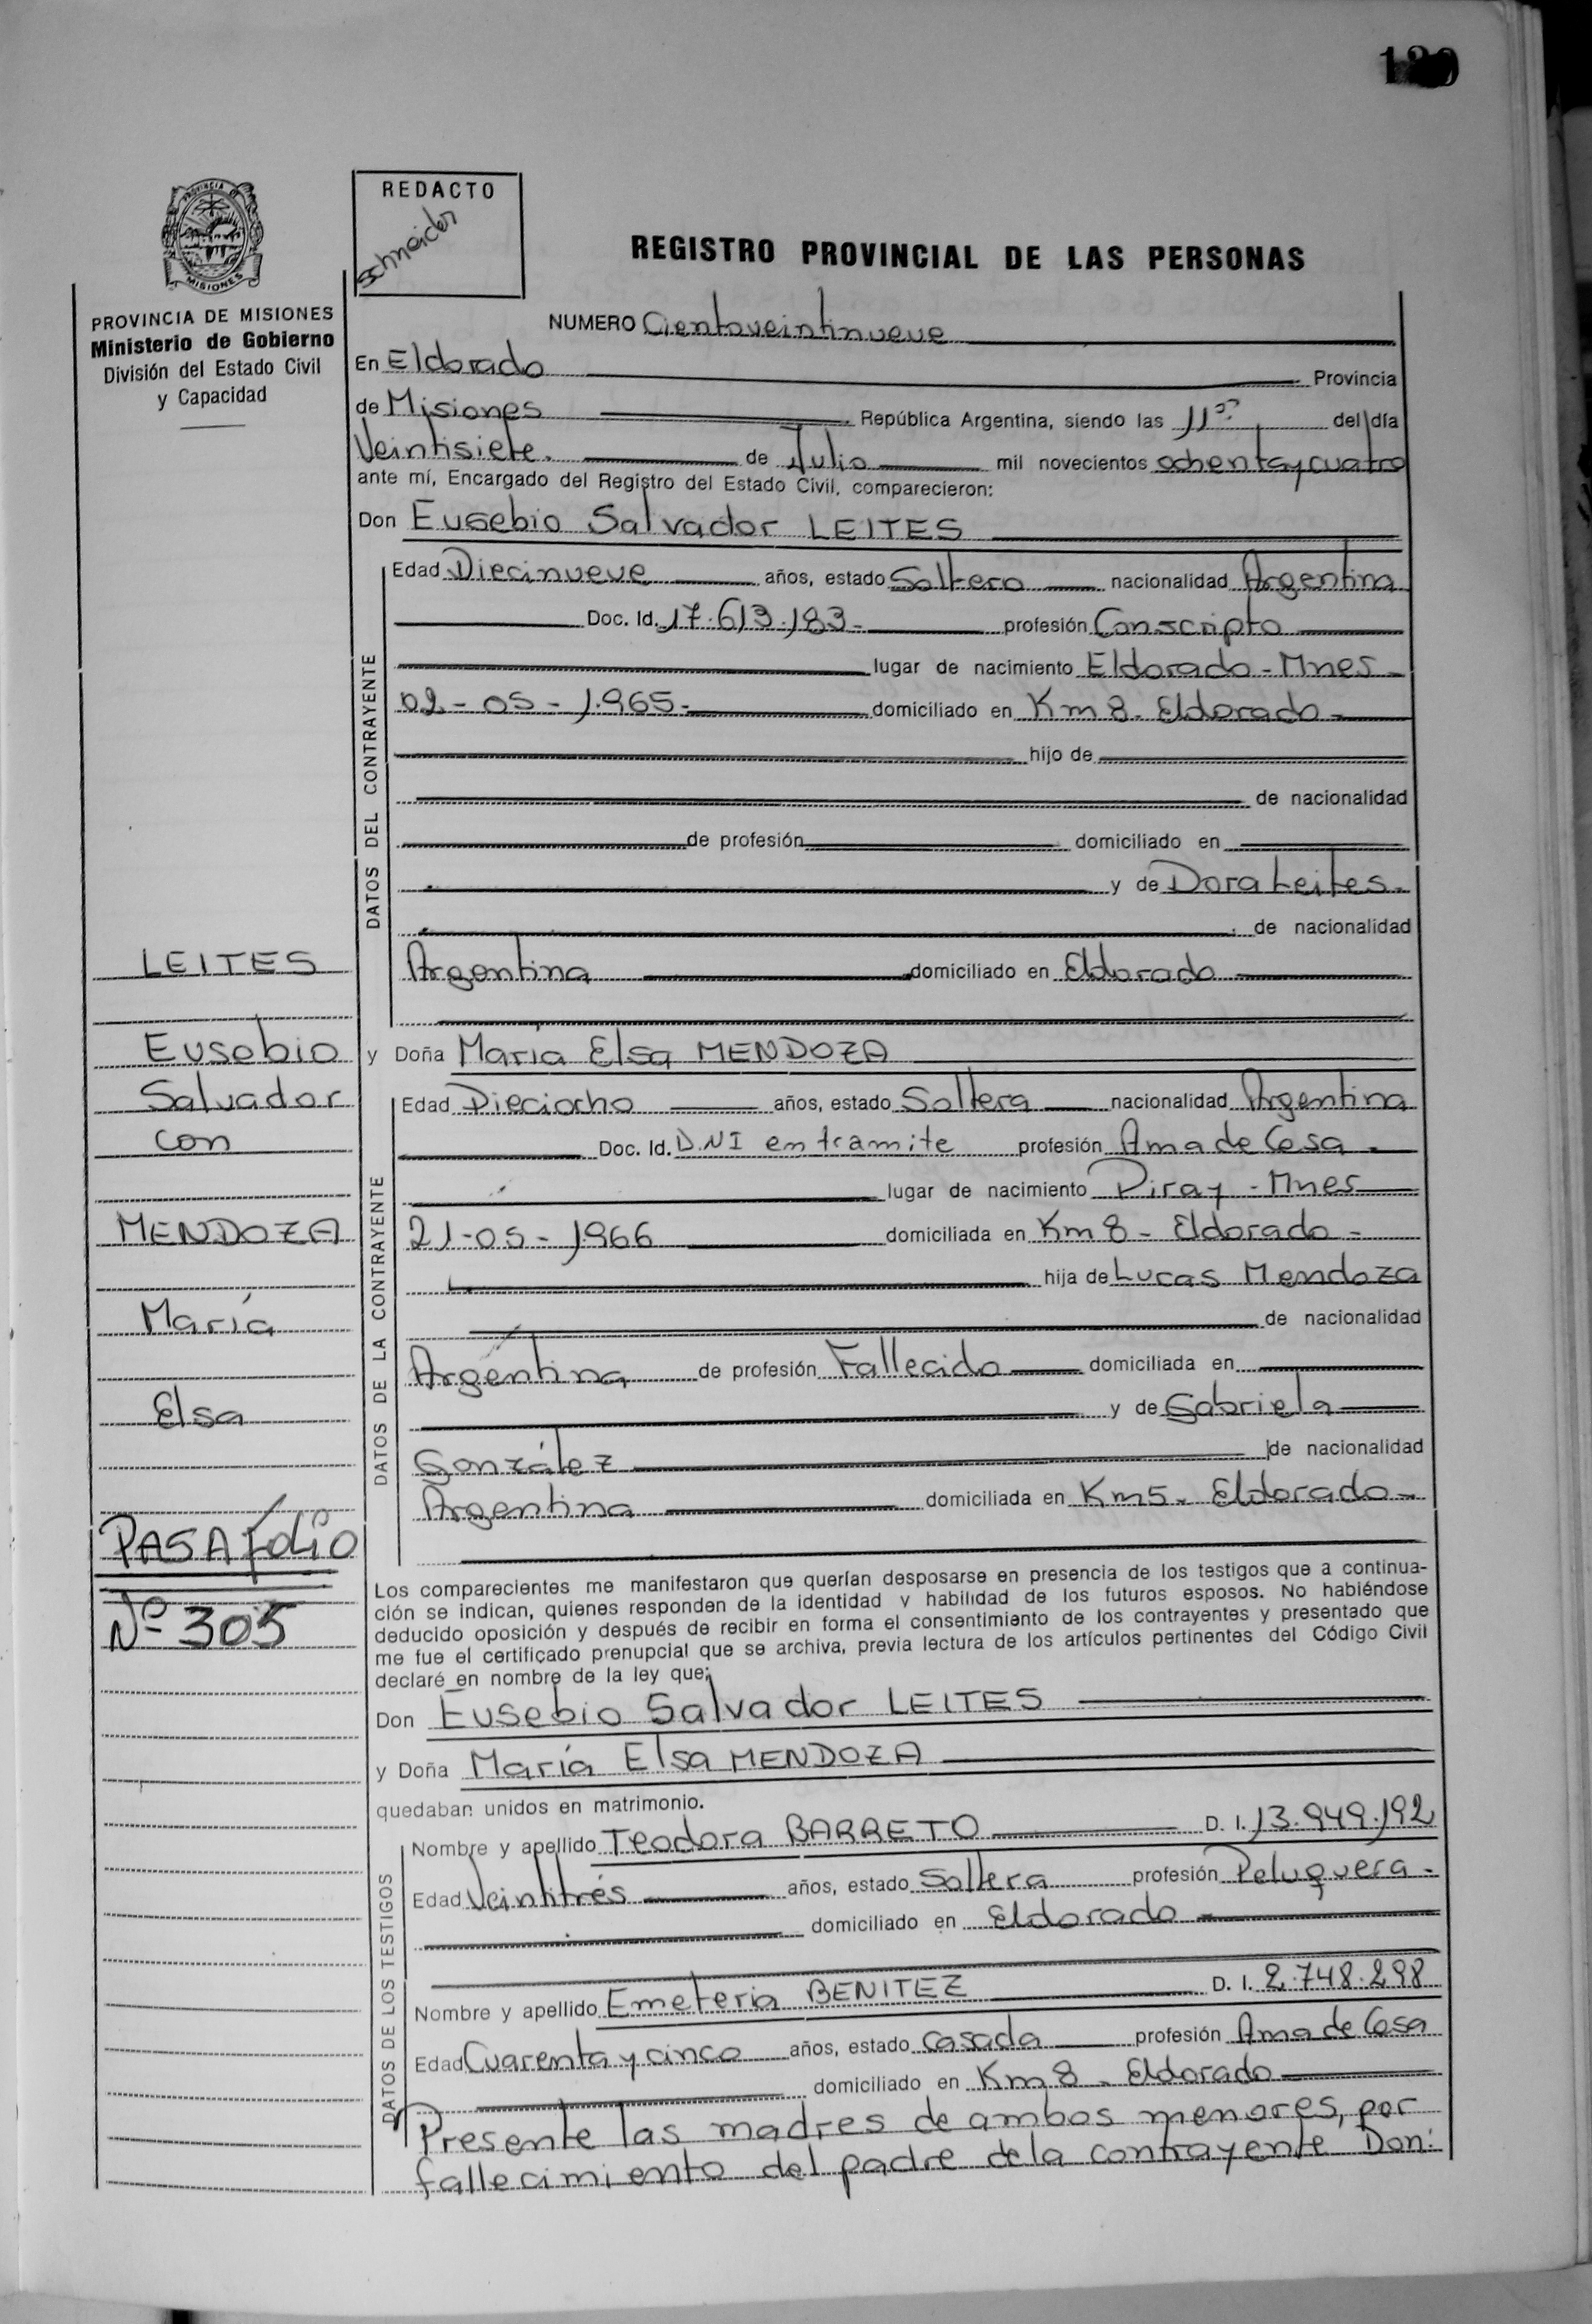 REDACTO
Schneider
PROVINCIA DE
MISIONES
REGISTRO PROVINCIAL DE LAS PERSONAS
PROVINCIA DE MISIONES
Ministerio de Gobierno
División del Estado Civil
y Capacidad
NUMERO Cientoveintinueve
En Eldorado Provincia
de Misiones República Argentina, siendo las 11⁰⁰ del día
Veintisiete. de Julio mil novecientos ochentaycuatro
ante mí, Encargado del Registro del Estado Civil, comparecieron:
Don Eusebio Salvador LEITES
DATOS DEL CONTRAYENTE
Edad Diecinueve años, estado Soltero nacionalidad Argentina
Doc. Id. 17.613.183.- profesión Conscripto
lugar de nacimiento Eldorado-Mnes-
02-05-1.965- domiciliado en Km 8- Eldorado-
hijo de
de nacionalidad
de profesión domiciliado en
y de Dora Leites.
de nacionalidad
Argentina domiciliado en Eldorado
LEITES
Eusebio
Salvador
con
MENDOZA
María
Elsa
PASA folio
Nº 305
y Doña María Elsa MENDOZA
DATOS DE LA CONTRAYENTE
Edad Dieciocho años, estado Soltera nacionalidad Argentina
Doc. Id. D.N.I en tramite profesión Ama de Casa -
lugar de nacimiento Piray - Mnes
21-05-1.966 domiciliada en Km 8 - Eldorado -
hija de Lucas Mendoza
de nacionalidad
Argentina de profesión Fallecido domiciliada en
y de Gabriela
González de nacionalidad
Argentina domiciliada en Km5- Eldorado-
Los comparecientes me manifestaron que querían desposarse en presencia de los testigos que a continua-
ción se indican, quienes responden de la identidad y habilidad de los futuros esposos. No habiéndose
deducido oposición y después de recibir en forma el consentimiento de los contrayentes y presentado que
me fue el certificado prenupcial que se archiva, previa lectura de los artículos pertinentes del Código Civil
declaré en nombre de la ley que;
Don Eusebio Salvador LEITES
y Doña María Elsa MENDOZA
quedaban unidos en matrimonio.
DATOS DE LOS TESTIGOS
Nombre y apellido Teodora BARRETO D. I. 13.949.192
Edad Veintitrés años, estado Soltera profesión Peluquera-
domiciliado en Eldorado -
Nombre y apellido Emeteria BENITEZ D. I. 2.748.298
Edad Cuarenta y cinco años, estado casada profesión Ama de Casa
domiciliado en Km 8 - Eldorado
Presente las madres de ambos menores, por
fallecimiento del padre de la contrayente Don: